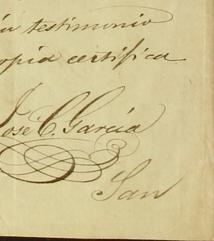 testimonio
opia certifica
José C. García
San